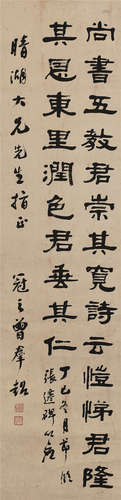 尚書五教君崇其寬詩云愷悌君隆
其恩東里潤色君垂其仁
丁巳冬月節臨
張遷碑以為
晴湖大兄先生指正
冠之曾羣鋙